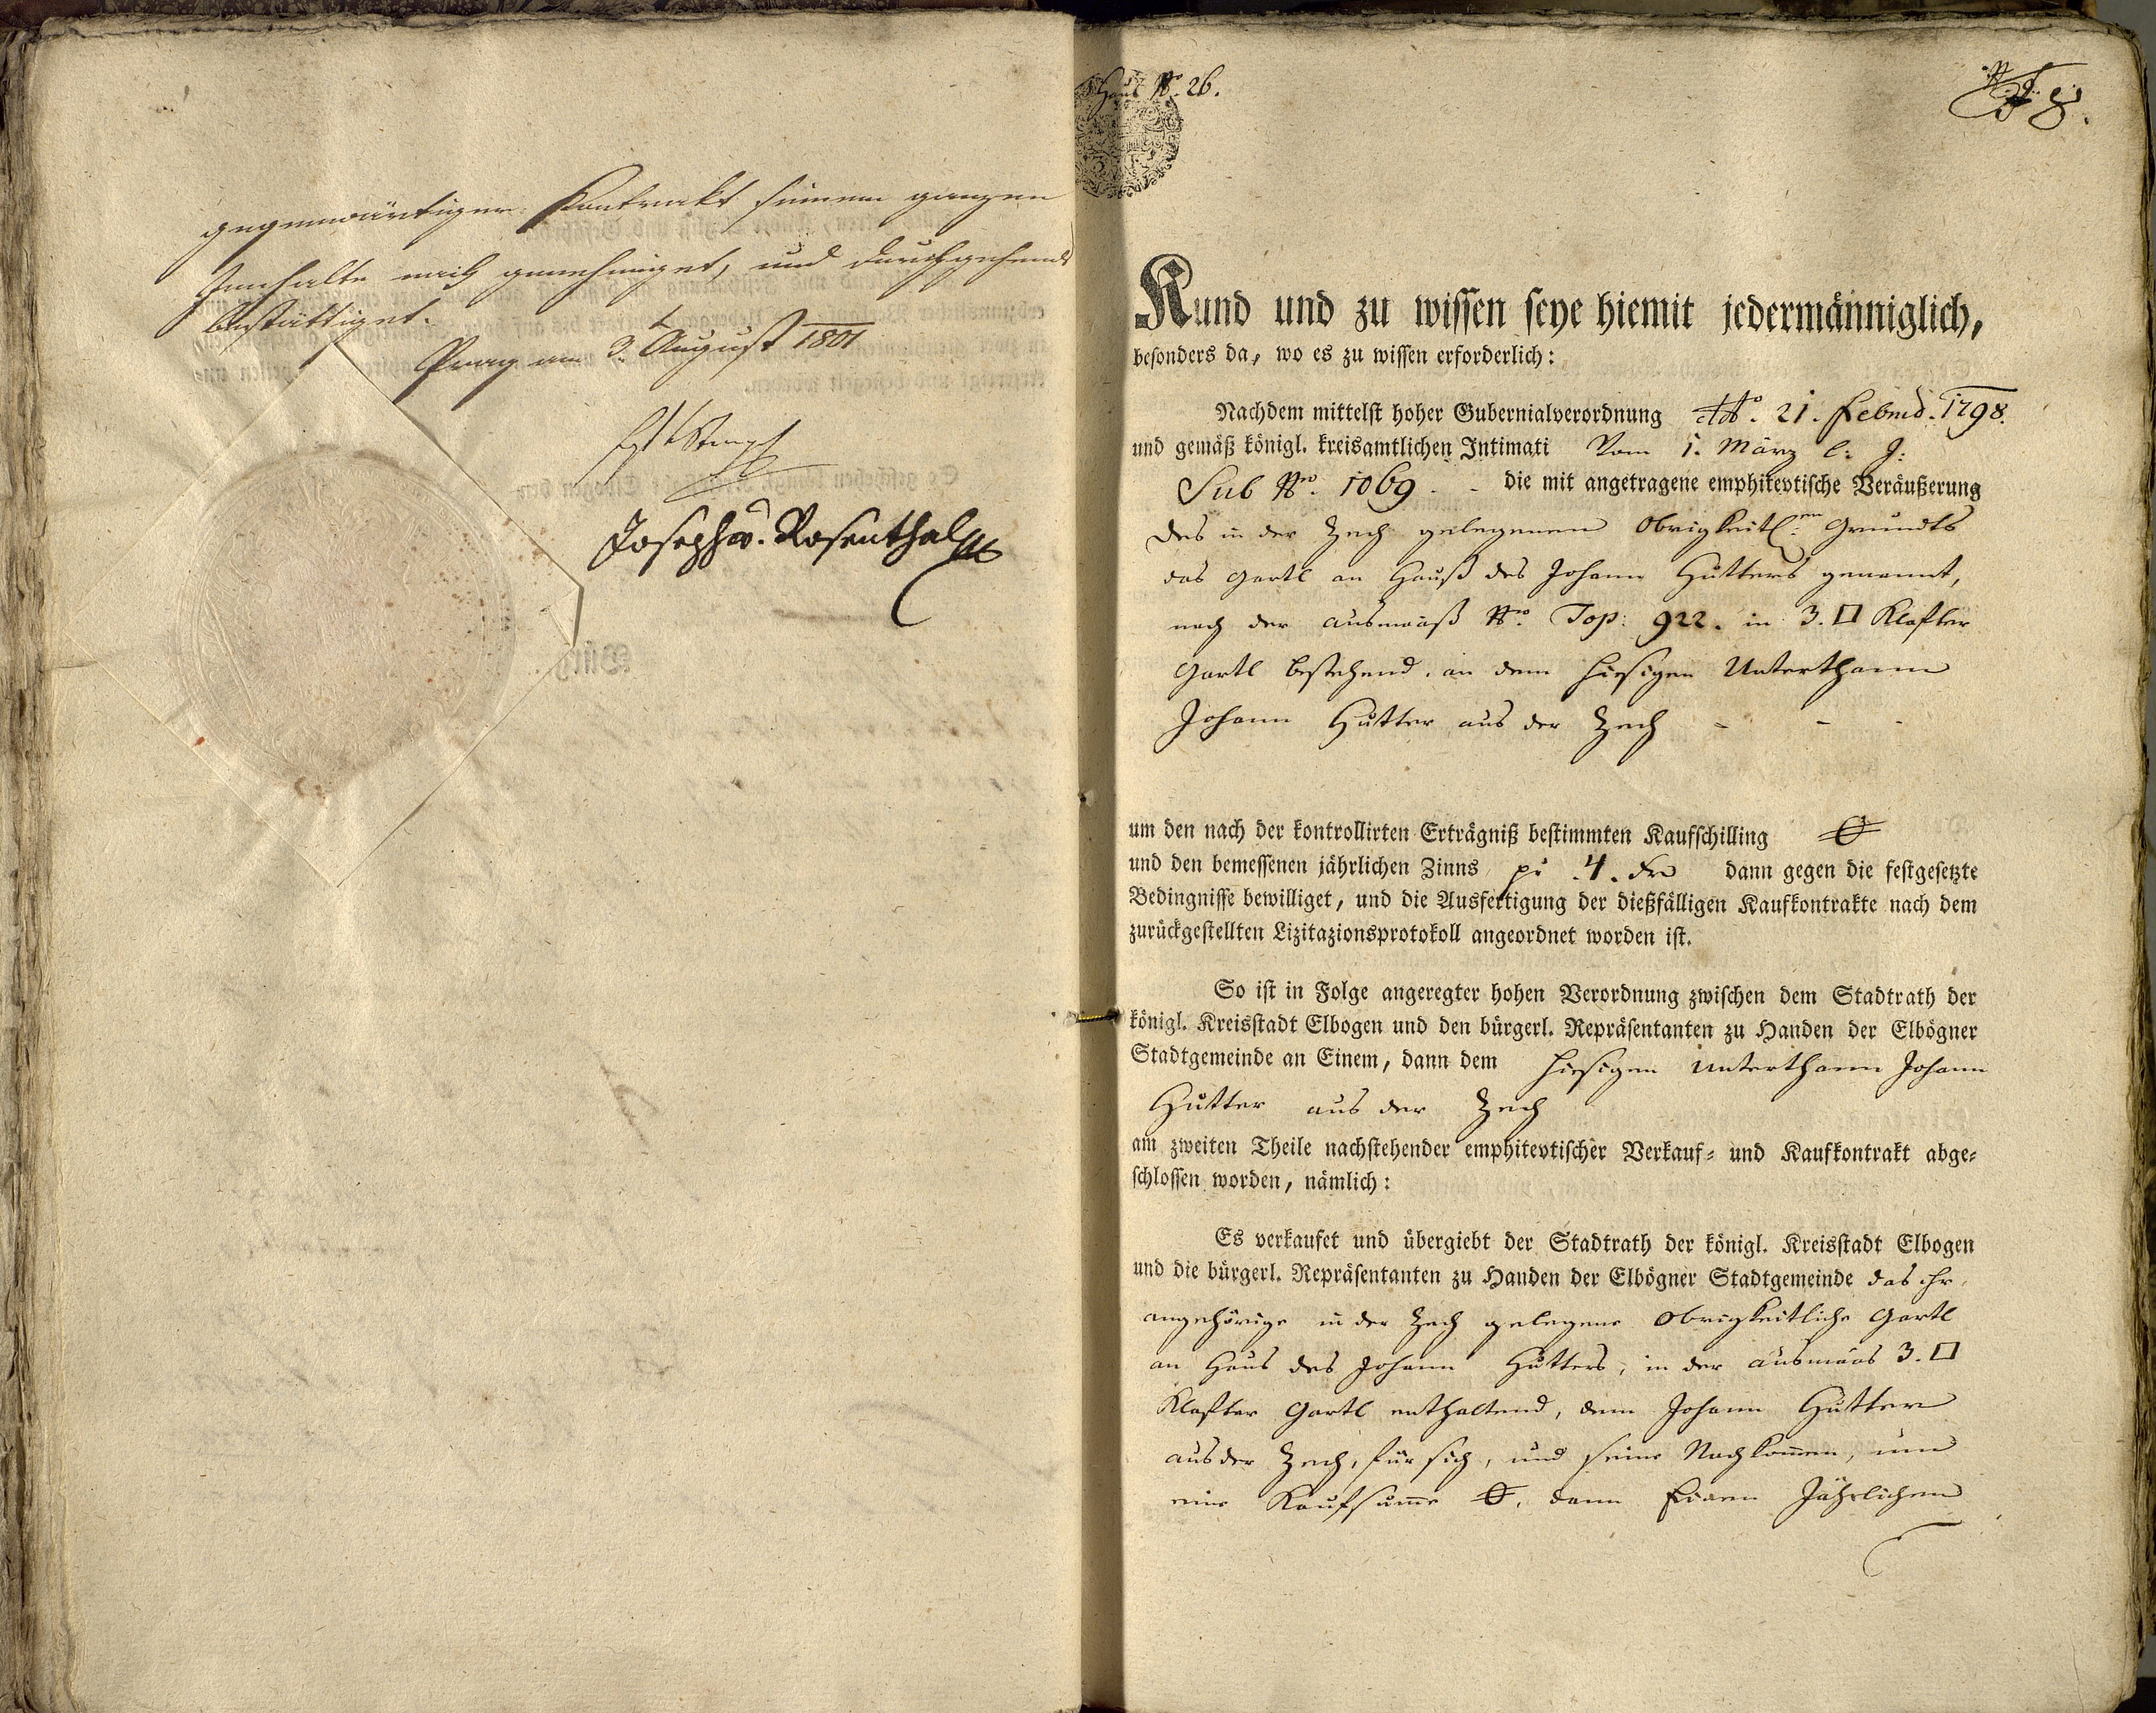 gegenwärtigen Kontrakt seinem ganzen
Innhalte nach genehmiget, und durchgehends
bestättiget.
Prag am 3. August 1801
Joseph v. Rosenthal
Haus No. 26.
8.
Kund und zu wissen seye hiemit jedermänniglich,
besonders da, wo es zu wissen erforderlich:
Nachdem mittelst hoher Gubernialverordnung ddto. 21. Febru. 1798.
und gemäß königl. kreisamtlichen Intimati Vom 1. März l: J:
Sub No. 1069 - - die mit angetragene emphitevtische Veräußerung
des in der Zech gelegenen Obrigkeitl:en Grundts
das Gartl an Hauß des Johann Hutters genannt,
nach der Ausmaaß No. Top: 922. in 3. □ Klafter
Gartl bestehend, an dem hiesigen Unterthann
Johann Hutter aus der Zech - - -
um den nach der kontrollirten Erträgniß bestimmten Kaufschilling
und den bemessenen jährlichen Zinns pr 4. kr dann gegen die festgesetzte
Bedingnisse bewilliget, und die Ausfertigung der dießfälligen Kaufkontrakte nach dem
zurückgestellten Lizitazionsprotokoll angeordnet worden ist.
So ist in Folge angeregter hohen Verordnung zwischen dem Stadtrath der
königl. Kreisstadt Elbogen und den bürgerl. Repräsentanten zu Handen der Elbögner
Stadtgemeinde an Einem, dann dem hiesigen Unterthann Johann
Hutter aus der Zech
am zweiten Theile nachstehender emphitevtischer Verkauf- und Kaufkontrakt abge-
schlossen worden, nämlich:
Es verkaufet und übergiebt der Stadtrath der königl. Kreisstadt Elbogen
und die bürgerl. Repräsentanten zu Handen der Elbögner Stadtgemeinde das ihr
angehörige in der Zech gelegene Obrigkeitliche Gartl
an Haus des Johann Hutters, in der Ausmaas 3. □
Klafter Gartl enthaltend, dem Johann Hutter
aus der Zech, für sich, und seine Nachkommen, um
eine Kaufsumme dann Einen Jährlichen